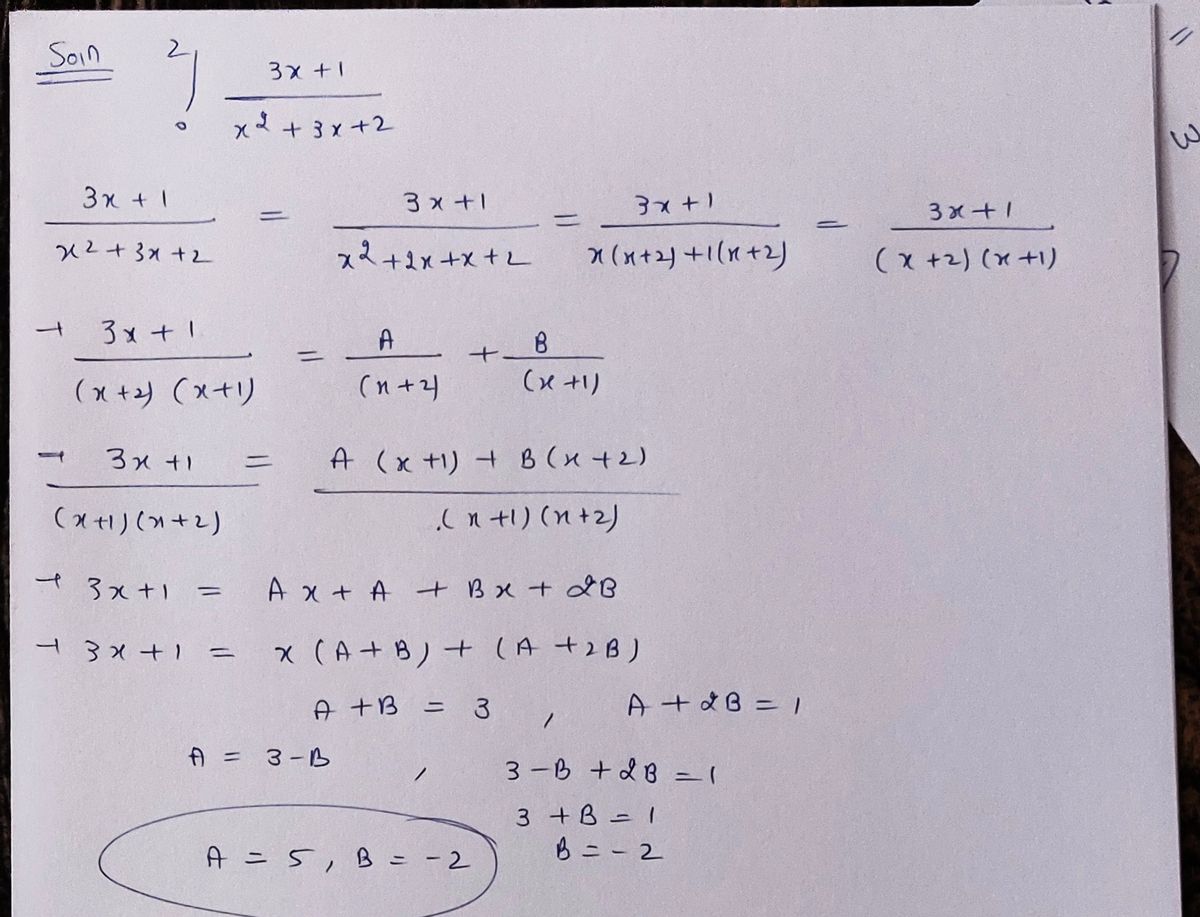 Soln ∫₀² (3x+1)/(x²+3x+2)
(3x+1)/(x²+3x+2) = (3x+1)/(x²+2x+x+2) = (3x+1)/(x(x+2)+1(x+2)) = (3x+1)/((x+2)(x+1))
→ (3x+1)/((x+2)(x+1)) = A/(x+2) + B/(x+1)
→ (3x+1)/((x+1)(x+2)) = (A(x+1)+B(x+2))/((x+1)(x+2))
→ 3x+1 = Ax+A+Bx+2B
→ 3x+1 = x(A+B)+(A+2B)
A+B = 3, A+2B = 1
A = 3-B, 3-B+2B = 1
3+B = 1
B = -2
A = 5, B = -2